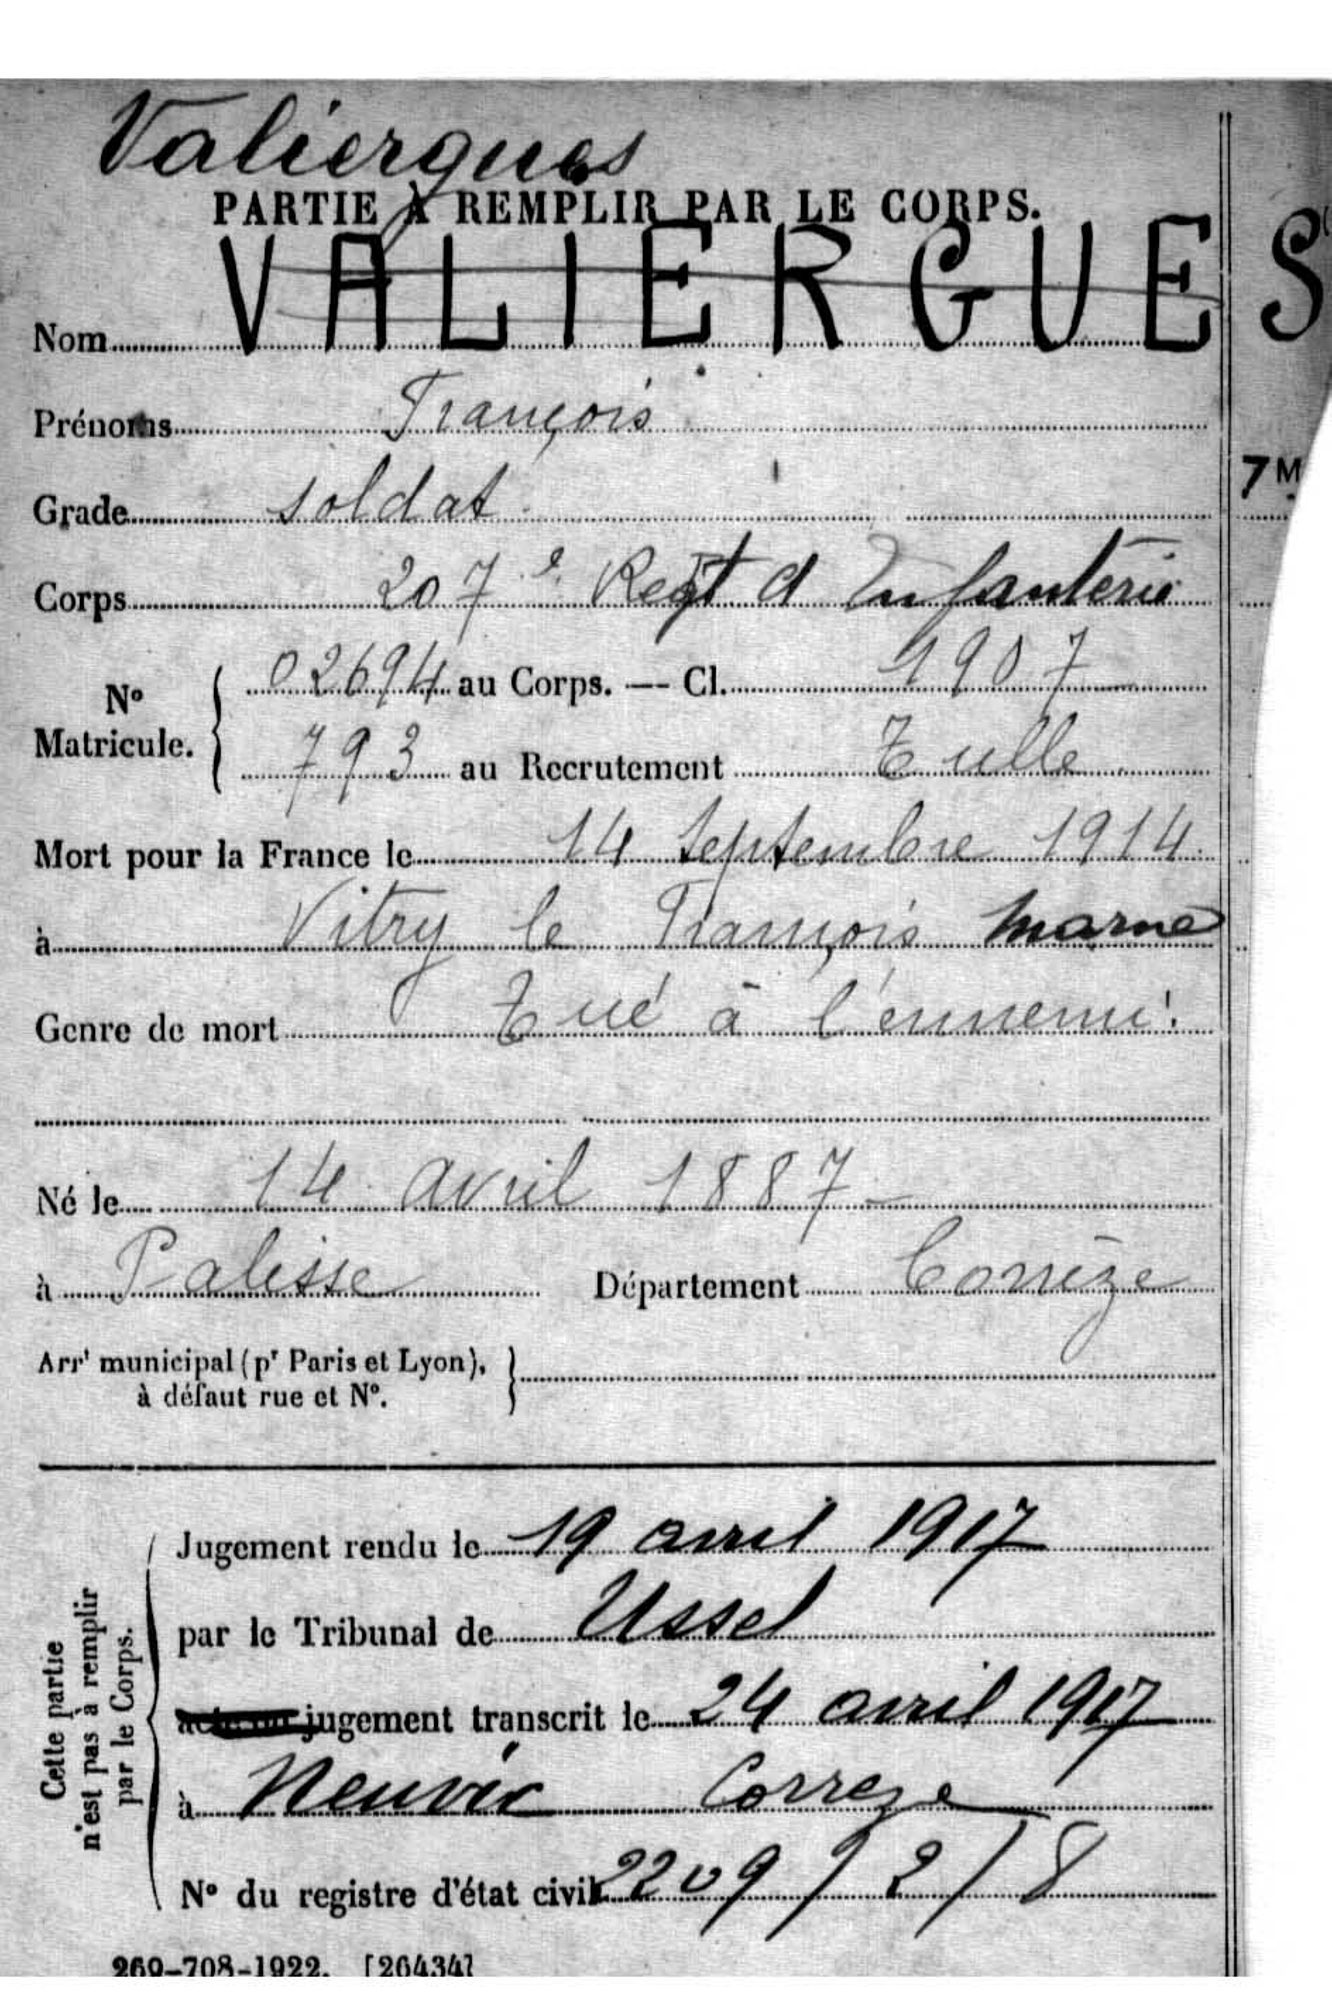 Valiergues
PARTIE À REMPLIR PAR LE CORPS.
Nom VALIERGUES
Prénoms François
Grade soldat
Corps 207e Regt d Infanterie
No Matricule. 02694 au Corps. — Cl. 1907
793 au Recrutement Tulle
Mort pour la France le 14 Septembre 1914
à Vitry le François Marne
Genre de mort Tué à l'ennemi.
Né le 14 avril 1887
à Palisse Département Corrèze
Arrt municipal (pr Paris et Lyon),
à défaut rue et No.
Cette partie
n'est pas à remplir
par le Corps.
Jugement rendu le 19 avril 1917
par le Tribunal de Ussel
acte ou jugement transcrit le 24 avril 1917
à Neuvic Correze
No du registre d'état civil 2209/2/8
269-708-1922. [26434]
7 M